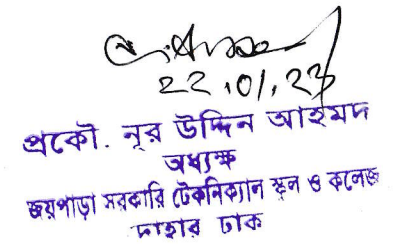 22.01.23
প্রকৌ. নূর উদ্দিন আহমদ
অধ্যক্ষ
জয়পাড়া সরকারি টেকনিক্যাল স্কুল ও কলেজ
দোহার ঢাকা